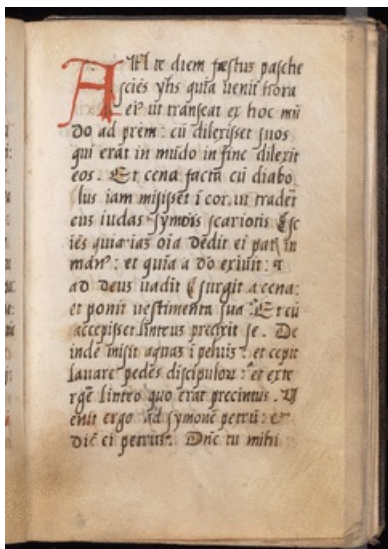 Añ te diem fæstus pasche
sciēs yhs quia uenit hora
ei⁹ ut transeat ex hoc mū
do ad prem : cū dilexisset suos
qui erāt in mūdo in fine dilexit
eos . Et cena factā cū diabo
lus iam misisset ī cor, ut tradet
eus iudas symōis scariotis Sc
iēs quia oīa dedit ei pat̄ in
man⁹ : et quia a do exiuit : ⁊
ad deus uadit Surgit a cena :
et ponit uestimenta sua . Et cū
accepisset linteus precixit se . De
inde misit aquas ī peluis : et cepit
lauare pedes discipulou : et exte
rgē linteo quo erat precintus . V
enit ergo ad symonē petrū : et
dic̄ ei petrus . Dne tu mihi